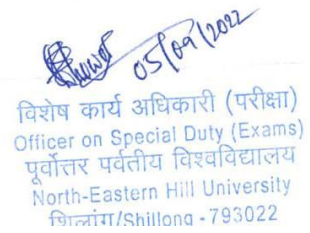 05/09/2022
विशेष कार्य अधिकारी (परीक्षा)
Officer on Special Duty (Exams)
पूर्वोत्तर पर्वतीय विश्वविद्यालय
North-Eastern Hill University
शिलांग/Shillong - 793022